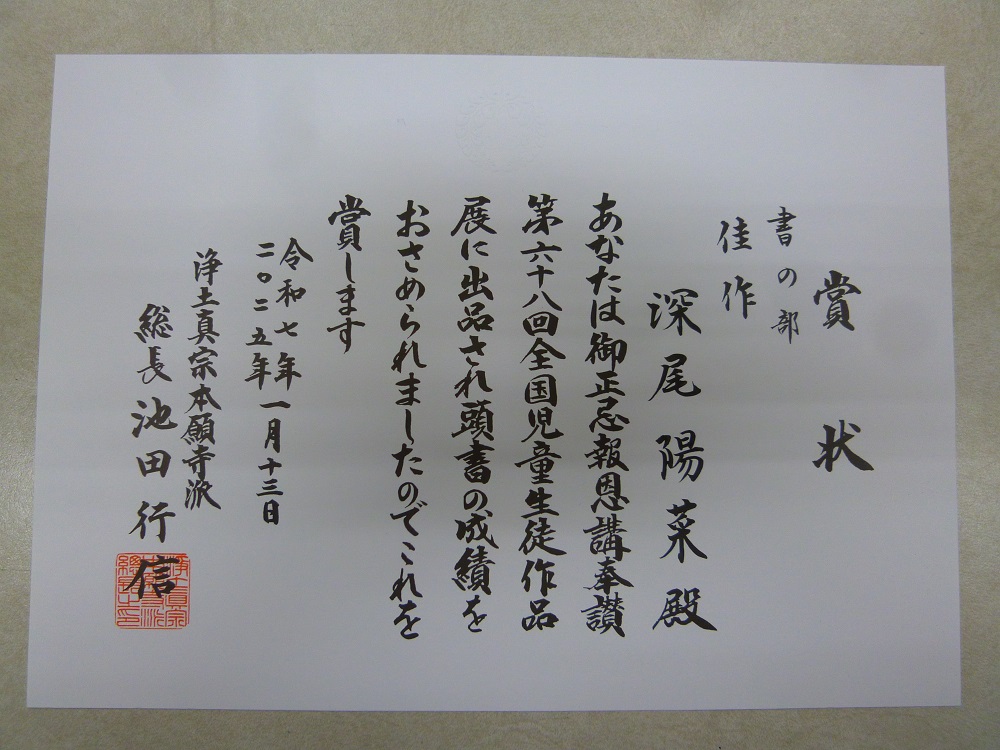 賞状
書の部
佳作
深尾陽菜殿
あなたは御正忌報恩講奉讃
第六十八回全国児童生徒作品
展に出品され頭書の成績を
おさめられましたのでこれを
賞します
令和七年
二〇二五年
一月十三日
浄土真宗本願寺派
総長 池田行信